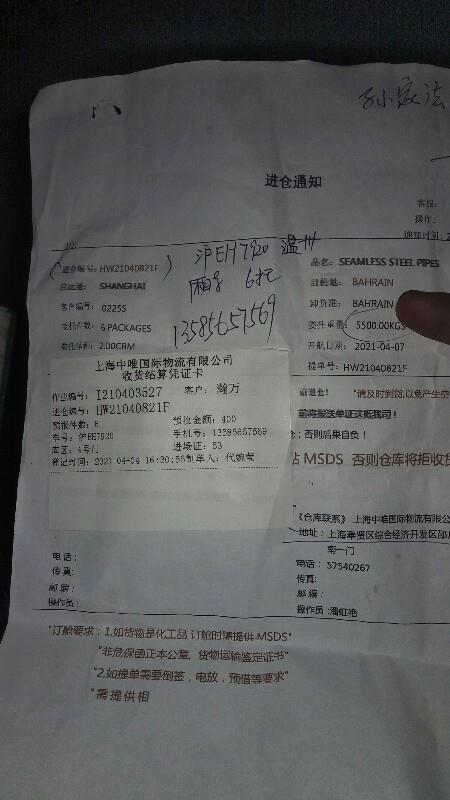 孙家法
进仓通知
客服:
操作:
通知时间:2
沪EH7920 温州
进仓编号: HW21040821F
品名: SEAMLESS STEEL PIPES
启运港: SHANGHAI
厢车 6托
目的地: BAHRAIN
客户编号: 0225S
卸货港: BAHRAIN
委托件数: 6 PACKAGES
13585657569
委托重量: 5500.00KGS
委托体积: 2.00CBM
开航日期: 2021-04-07
提单号: HW21040821F
上海中唯国际物流有限公司
收货结算凭证卡
作业编号: I210403527 客户: 瀚万
进仓编号: HW21040821F
预报件数: 6 预收金额: 400
车号: 沪EH7920 手机号: 13585657569
库区: 4号门 进场证: 53
登记时间: 2021-04-04 16:30:55 制单人: 代婉莹
前进仓! "请及时到货,以免产生空
前将报送单证送抵我司!
; 否则后果自负!
站 MSDS 否则仓库将拒收货
《仓库联系》 上海中唯国际物流有限公
地址: 上海奉贤区综合经济开发区
南一门
电话:
电话: 37540267
传真:
传真:
邮编:
邮编:
操作员:
操作员: 潘虹艳
"订舱要求: 1.如货物是化工品 订舱时需提供 MSDS"
"非危保函正本公章, 货物运输鉴定证书"
"2.如提单需要倒签, 电放, 预借等要求"
"需提供相